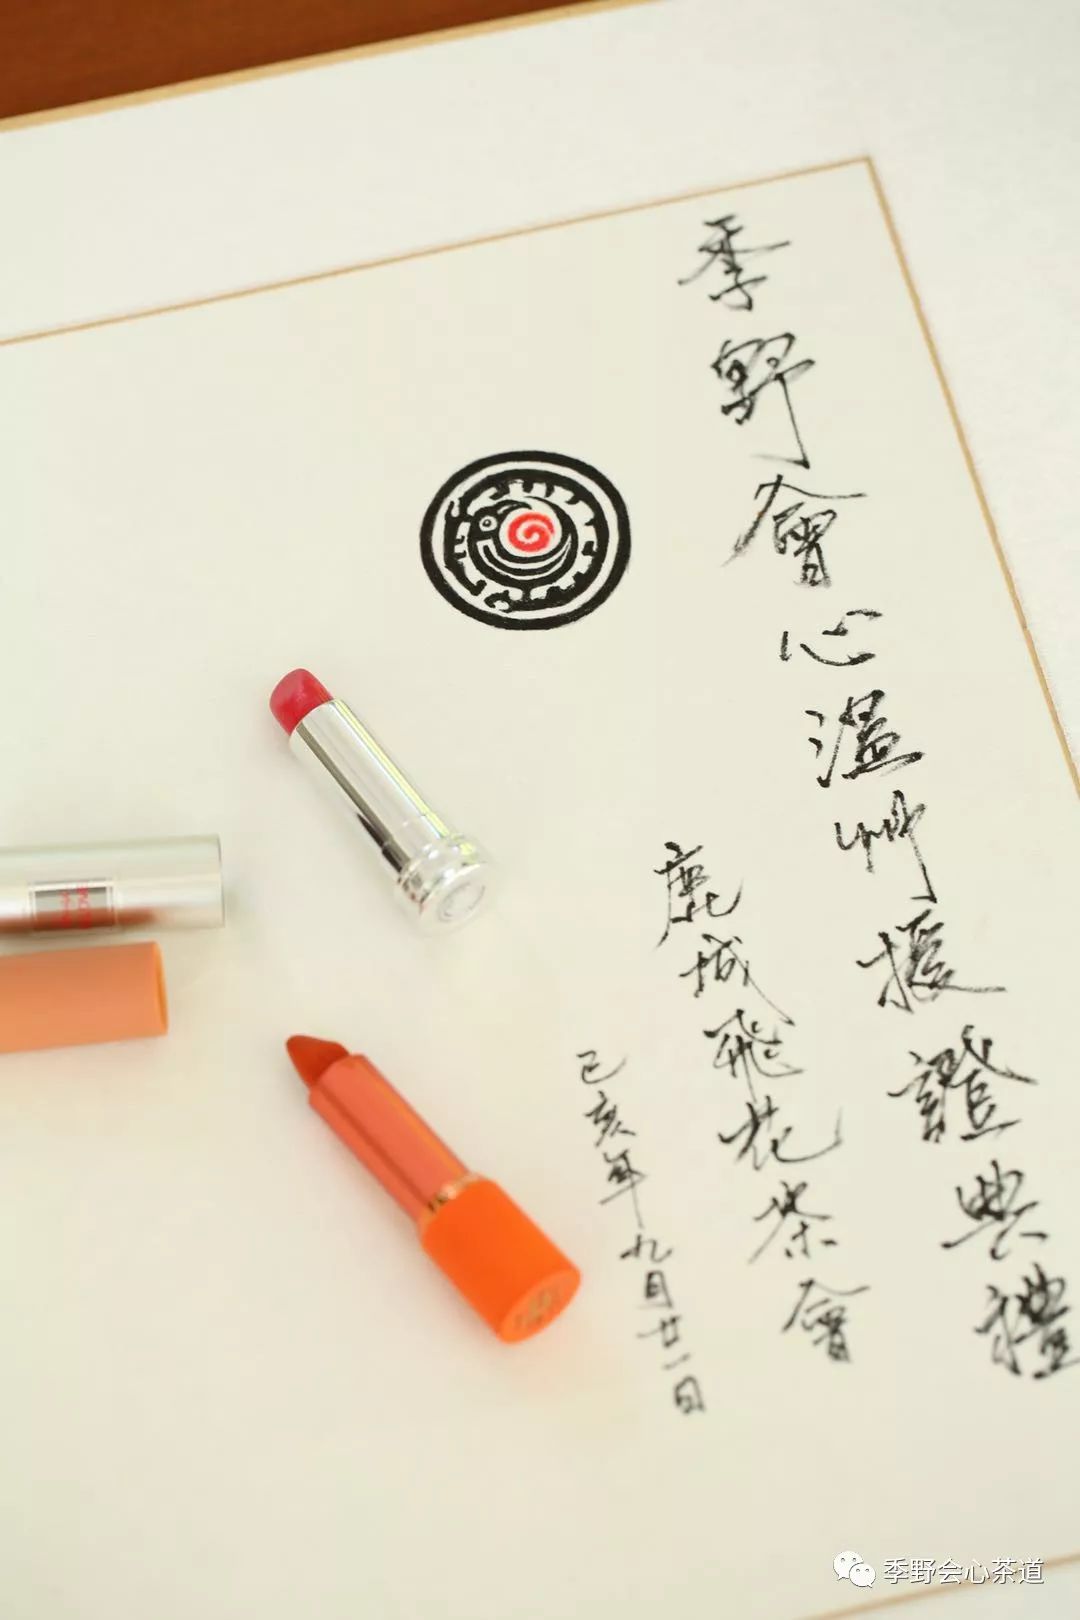 季野會心溫州授證典禮
鹿城飛花茶會
己亥年九月廿一日
季野会心茶道